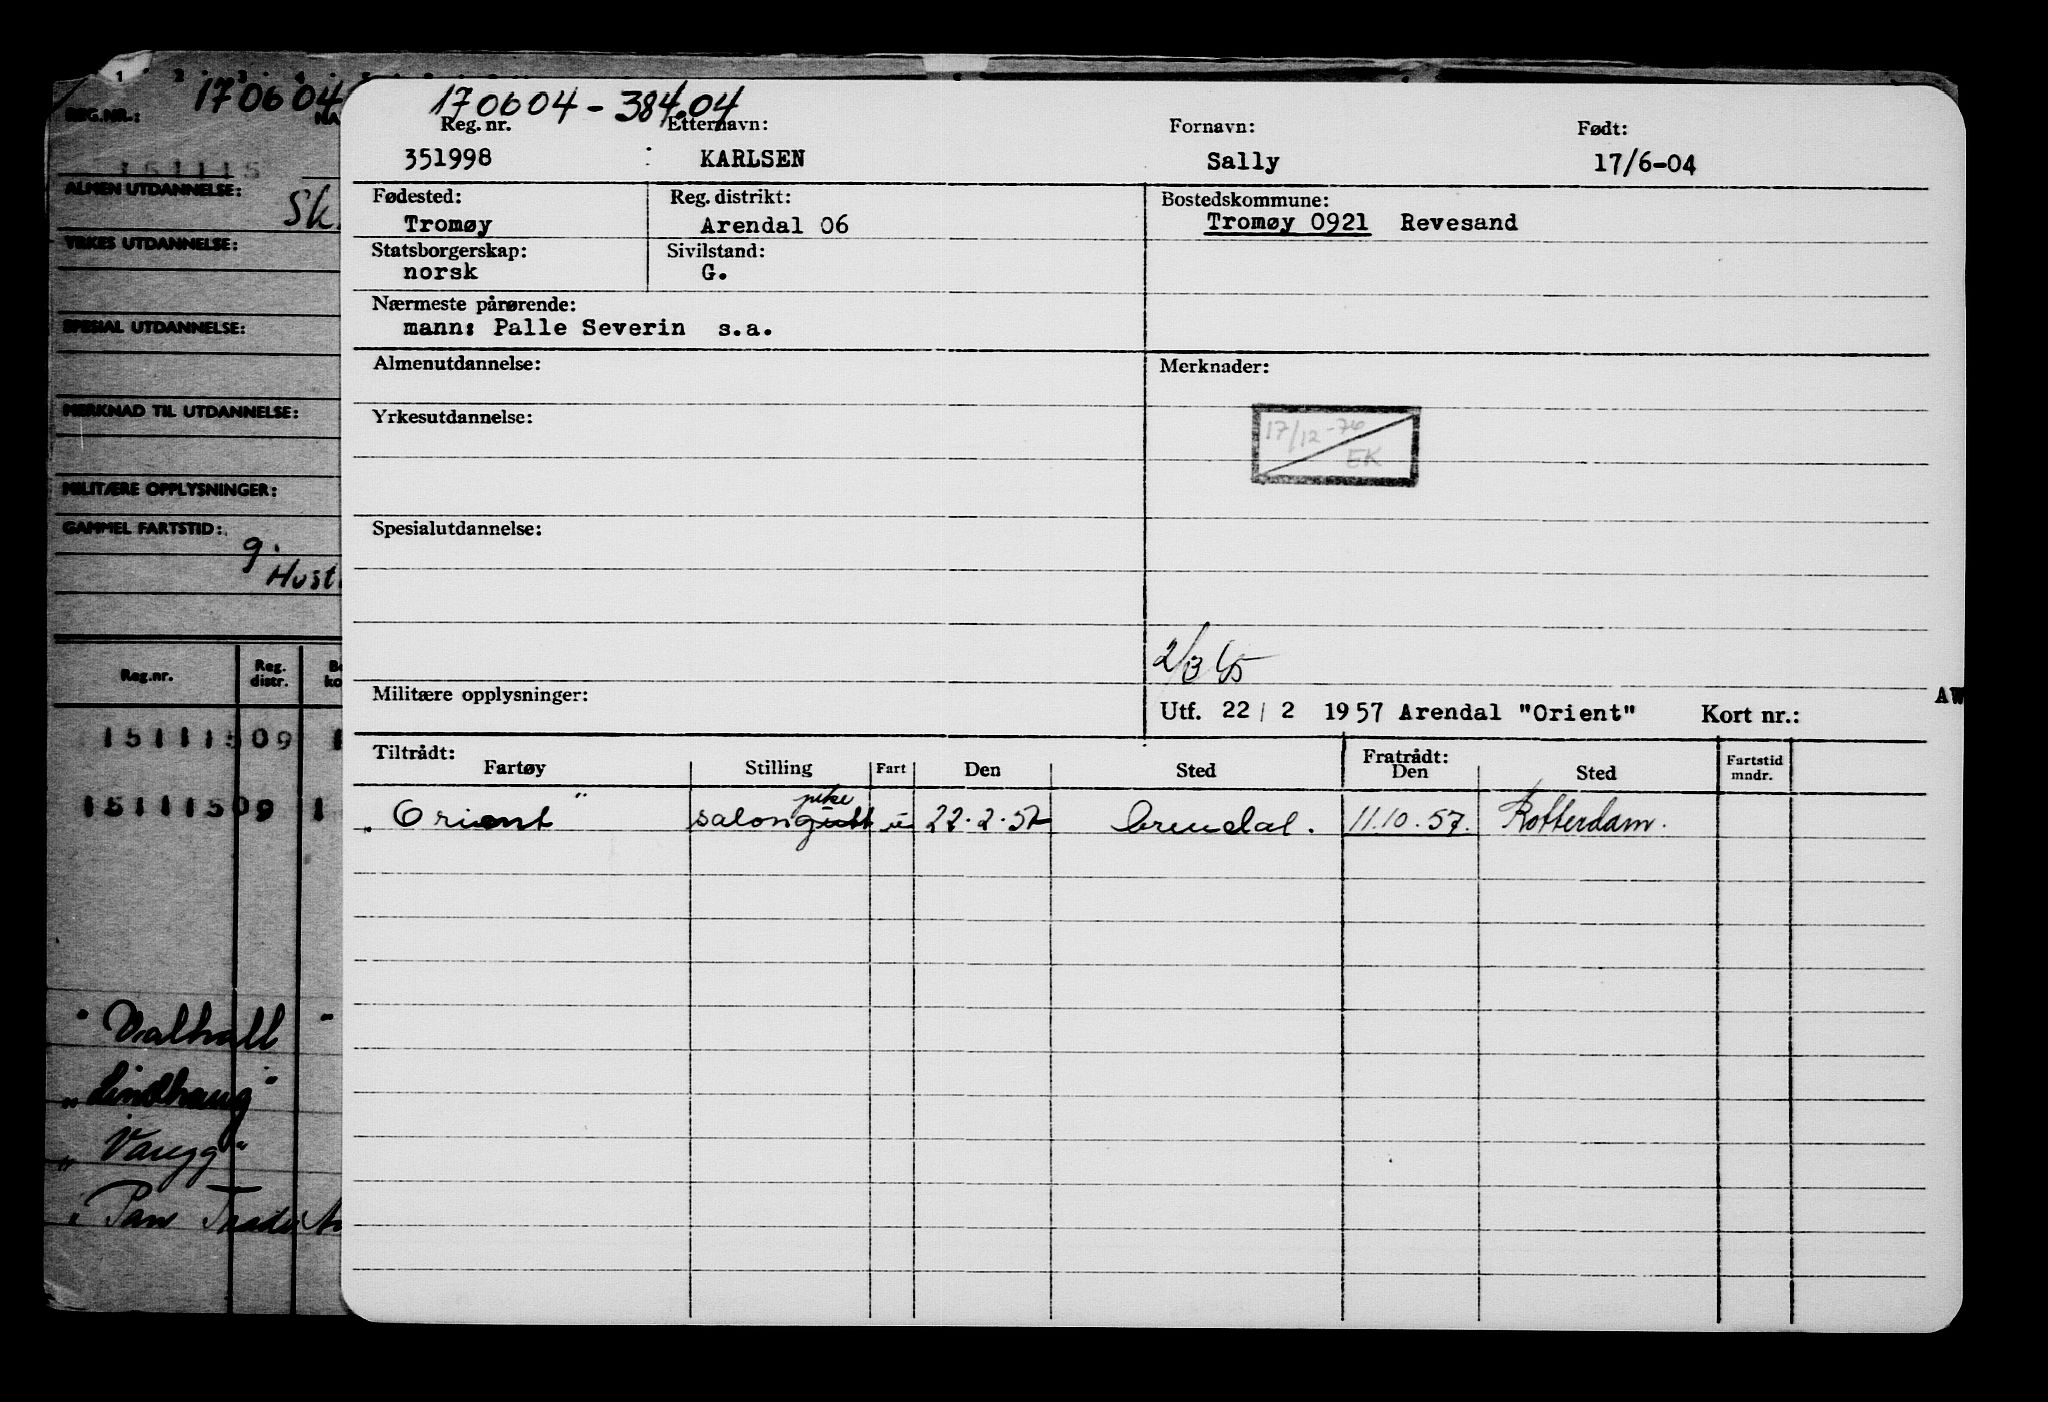 1 2 3 4
170604
REG.NR.:
NA
151115
ALMEN UTDANNELSE:
Sk.
YRKES UTDANNELSE:
SPESIAL UTDANNELSE:
MERKNAD TIL UTDANNELSE:
MILITÆRE OPPLYSNINGER:
GAMMEL FARTSTID:
g.
Hust
Reg.nr. Reg. distr. Be ko
15111509 1
15111509 1
"Valhall"
"Lindhaug"
"Varyg"
Pan
170604-384.04
Reg. nr. Etternavn: Fornavn: Født:
351998 KARLSEN Sally 17/6-04
Fødested: Reg. distrikt: Bostedskommune:
Tromøy Arendal 06 Tromøy 0921 Revesand
Statsborgerskap: Sivilstand:
norsk G.
Nærmeste pårørende:
mann: Palle Severin s.a.
Almenutdannelse: Merknader:
Yrkesutdannelse:
17/12-76
EK
Spesialutdannelse:
Militære opplysninger:
Utf. 22 / 2 1957 Arendal "Orient" Kort nr.:
AW
Tiltrådt: Fratrådt:
Fartøy Stilling Fart Den Sted Den Sted Fartstid mndr.
pike
"Orient" salongutt u 22.2.57 Arendal. 11.10.57. Rotterdam.